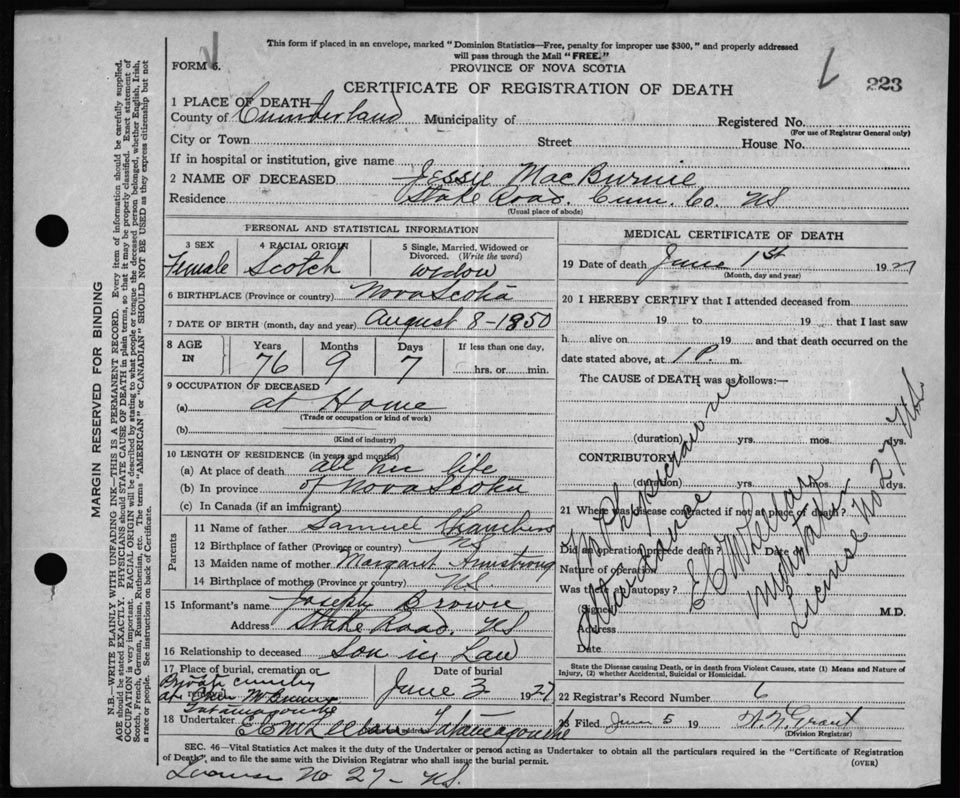 This form if placed in an envelope, marked "Dominion Statistics—Free, penalty for improper use $300," and properly addressed
will pass through the Mail "FREE."
FORM 6.
PROVINCE OF NOVA SCOTIA
CERTIFICATE OF REGISTRATION OF DEATH
223
1 PLACE OF DEATH
County of Cumberland Municipality of Registered No.
(For use of Registrar General only)
City or Town Street House No.
If in hospital or institution, give name
2 NAME OF DECEASED Jessie MacBurnie
Residence Stake Road. Cum. Co. NS
(Usual place of abode)
PERSONAL AND STATISTICAL INFORMATION
3 SEX 4 RACIAL ORIGIN 5 Single, Married, Widowed or
Divorced. (Write the word)
Female Scotch widow
6 BIRTHPLACE (Province or country) Nova Scotia
7 DATE OF BIRTH (month, day and year) August 8-1850
8 AGE IN Years Months Days If less than one day,
76 9 7 hrs. or min.
9 OCCUPATION OF DECEASED
(a) at Home
(Trade or occupation or kind of work)
(b)
(Kind of industry)
10 LENGTH OF RESIDENCE (in years and months)
(a) At place of death all her life
(b) In province of Nova Scotia
(c) In Canada (if an immigrant)
Parents
11 Name of father Samuel Chambers
12 Birthplace of father (Province or country) NS
13 Maiden name of mother Margaret Armstrong
14 Birthplace of mother (Province or country) NS.
15 Informant's name Joseph Brown
Address Stake Road. NS
16 Relationship to deceased Son in Law
17 Place of burial, cremation or Date of burial
at McBurnie June 2 1927
Tatamagouche
18 Undertaker Tatamagouche
MEDICAL CERTIFICATE OF DEATH
19 Date of death June 1st 1927
(Month, day and year)
20 I HEREBY CERTIFY that I attended deceased from
19 to 19 that I last saw
h alive on 19 and that death occurred on the
date stated above, at 1 P. m.
The CAUSE of DEATH was as follows:—
(duration) yrs. mos. dys.
CONTRIBUTORY
(duration) yrs. mos. dys.
21 Where was disease contracted if not at place of death?
Did an operation precede death? Date of
Nature of operation
Was there an autopsy?
(Signed) M.D.
Address
Date
No Physician in
Attendance
License No 27 N.S.
State the Disease causing Death, or in death from Violent Causes, state (1) Means and Nature of
Injury, (2) whether Accidental, Suicidal or Homicidal.
22 Registrar's Record Number 6
23 Filed June 5 19 Grant
(Division Registrar)
SEC. 46—Vital Statistics Act makes it the duty of the Undertaker or person acting as Undertaker to obtain all the particulars required in the "Certificate of Registration
of Death", and to file the same with the Division Registrar who shall issue the burial permit. (OVER)
License No 27 - NS.
MARGIN RESERVED FOR BINDING
N.B.—WRITE PLAINLY WITH UNFADING INK—THIS IS A PERMANENT RECORD. Every item of information should be carefully supplied.
AGE should be stated EXACTLY. PHYSICIANS should STATE CAUSE OF DEATH in plain terms, so that it may be properly classified. Exact statement of
OCCUPATION is very important. RACIAL ORIGIN will be described by stating to what people or tongue the deceased person belonged, whether English, Irish,
Scotch, French, German, Russian, Ruthenian, etc. The terms "AMERICAN" or "CANADIAN" SHOULD NOT BE USED as they express citizenship but not
a race or people. See instructions on back of Certificate.